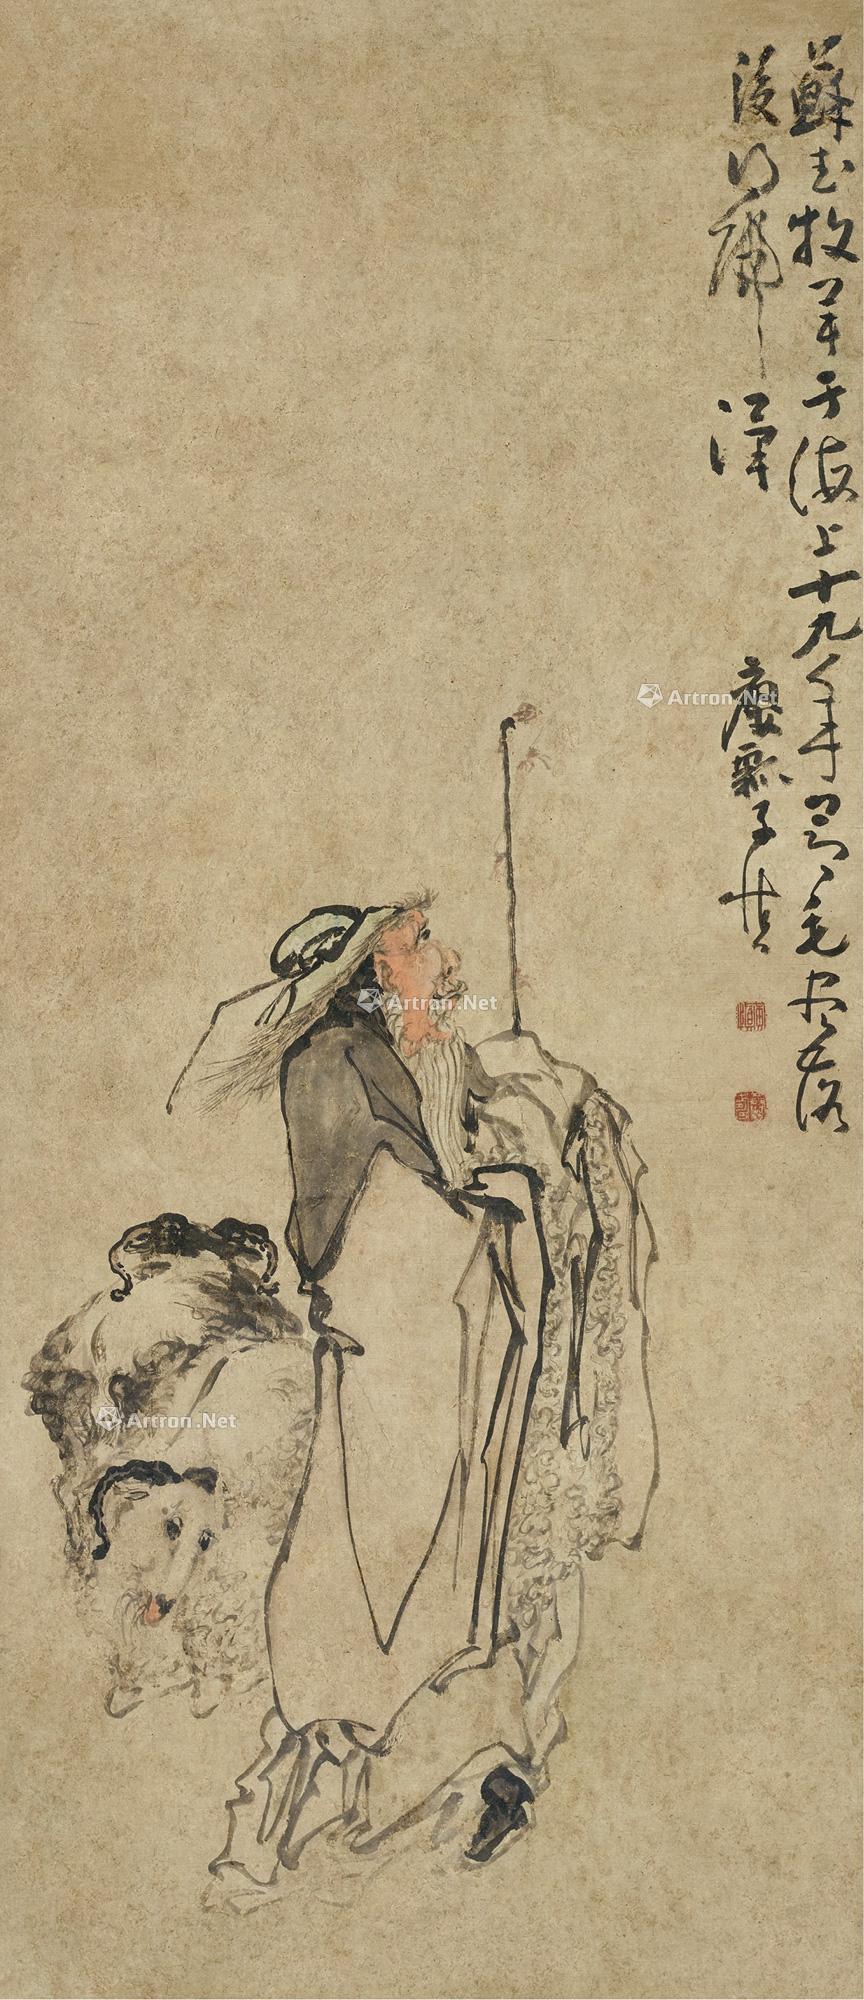 蘇武牧羊于海上十九年節毛盡落
後得歸漢
癭瓢子慎
Artron.Net
Artron.Net
Artron.Net